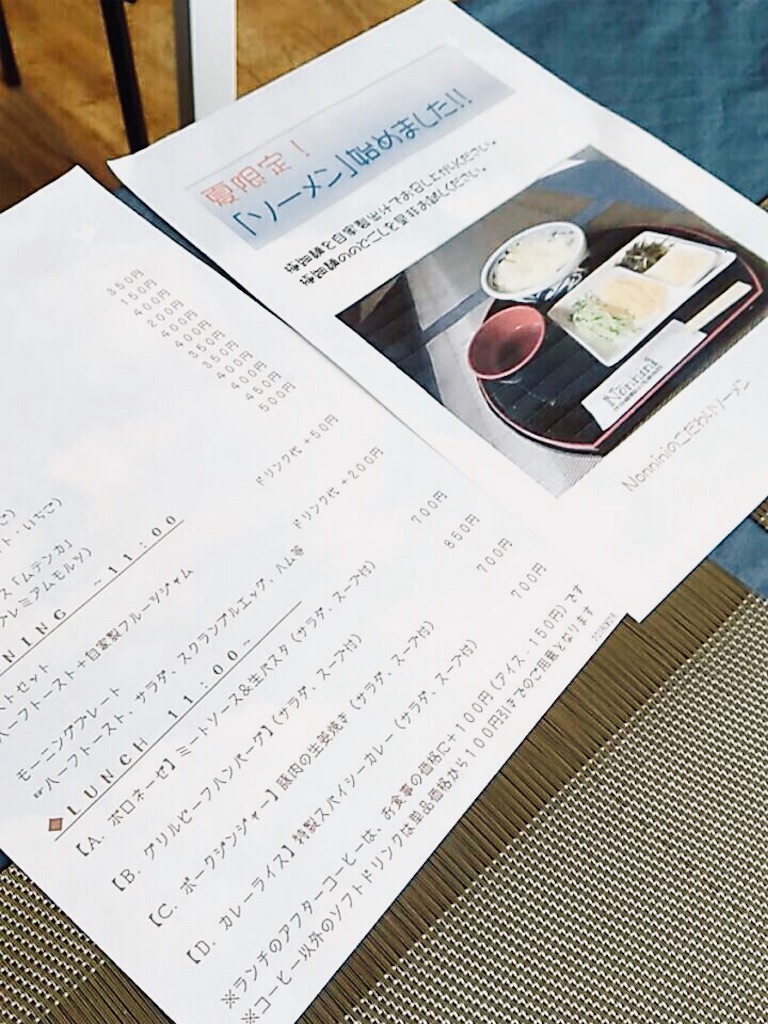 夏限定！
「ソーメン」始めました!!
Nonnini
Nonniniのこだわりソーメン
350円
150円
400円
200円
400円
400円
350円
350円
400円
400円
450円
500円
ト・いちご)
ス「ムテンカ」
プレミアムモルツ)
NING ~11:00
ドリンク代 +50円
トセット
ハーフトースト+自家製フルーツジャム
ドリンク代 +200円
モーニングプレート
ハーフトースト、サラダ、スクランブルエッグ、ハム等
◆LUNCH 11:00~
【A. ボロネーゼ】ミートソース&生パスタ (サラダ、スープ付) 700円
【B. グリルビーフハンバーグ】(サラダ、スープ付) 850円
【C. ポークジンジャー】豚肉の生姜焼き (サラダ、スープ付) 700円
【D. カレーライス】特製スパイシーカレー (サラダ、スープ付) 700円
※ランチのアフターコーヒーは、お食事の価格に+100円 (アイス・150円) です
※コーヒー以外のソフトドリンクは単品価格から100円引きでのご用意となります